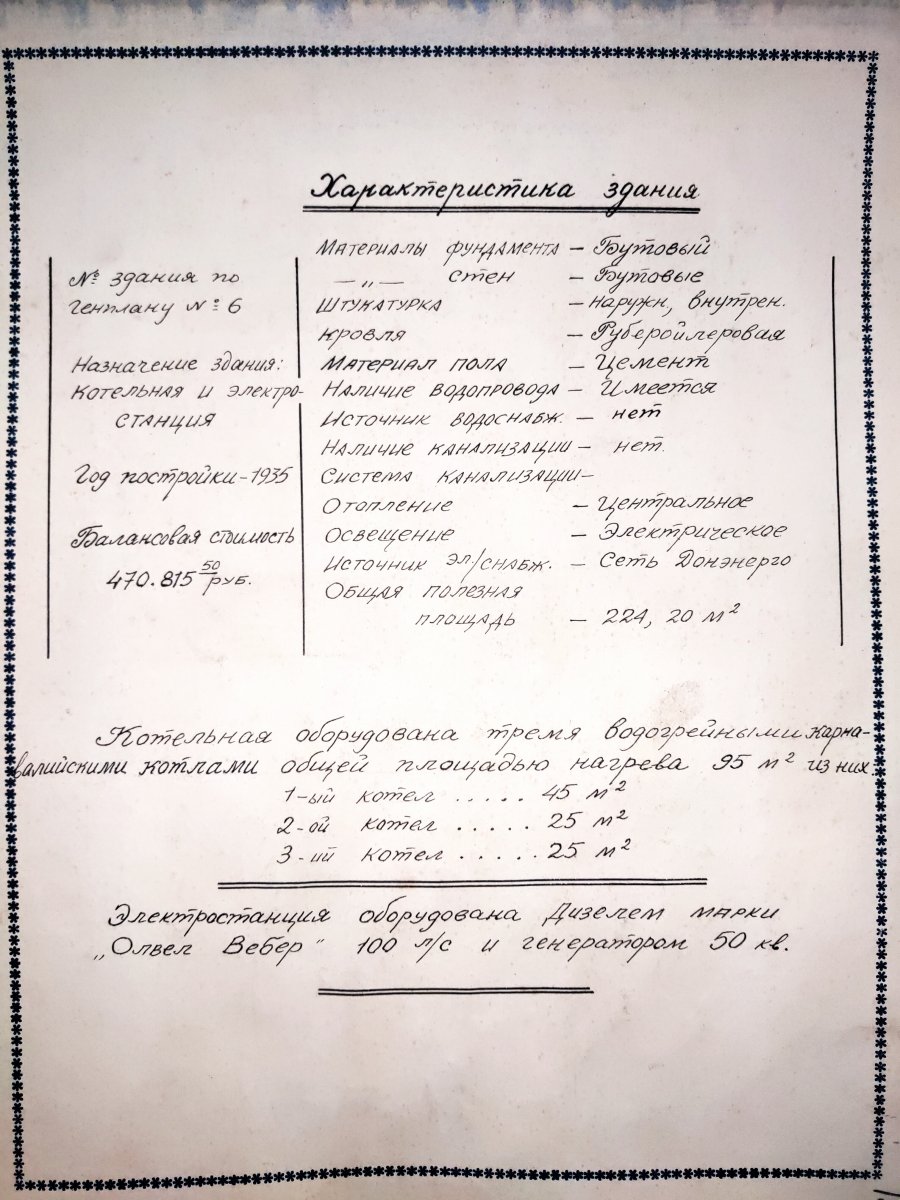 Характеристика здания
№ здания по
генплану № 6
Назначение здания:
Котельная и электро-
станция
Год постройки - 1935
Балансовая стоимость
470.815 50 руб.
Материалы фундамента - Бутовый
—„— стен - Бутовые
Штукатурка - наружн, внутрен.
Кровля - Руберойлеровая
Материал пола - Цемент
Наличие водопровода - Имеется
Источник водоснабж. - нет
Наличие канализации - нет.
Система канализации -
Отопление - Центральное
Освещение - Электрическое
Источник эл/снабж. - Сеть Донэнерго
Общая полезная
площадь - 224, 20 м²
Котельная оборудована тремя водогрейными карна-
валийскими котлами общей площадью нагрева 95 м² из них:
1-ый котел ..... 45 м²
2-ой котел ..... 25 м²
3-ий котел ..... 25 м²
Электростанция оборудована Дизелем марки
„Олвел Вебер" 100 л/с и генератором 50 кв.